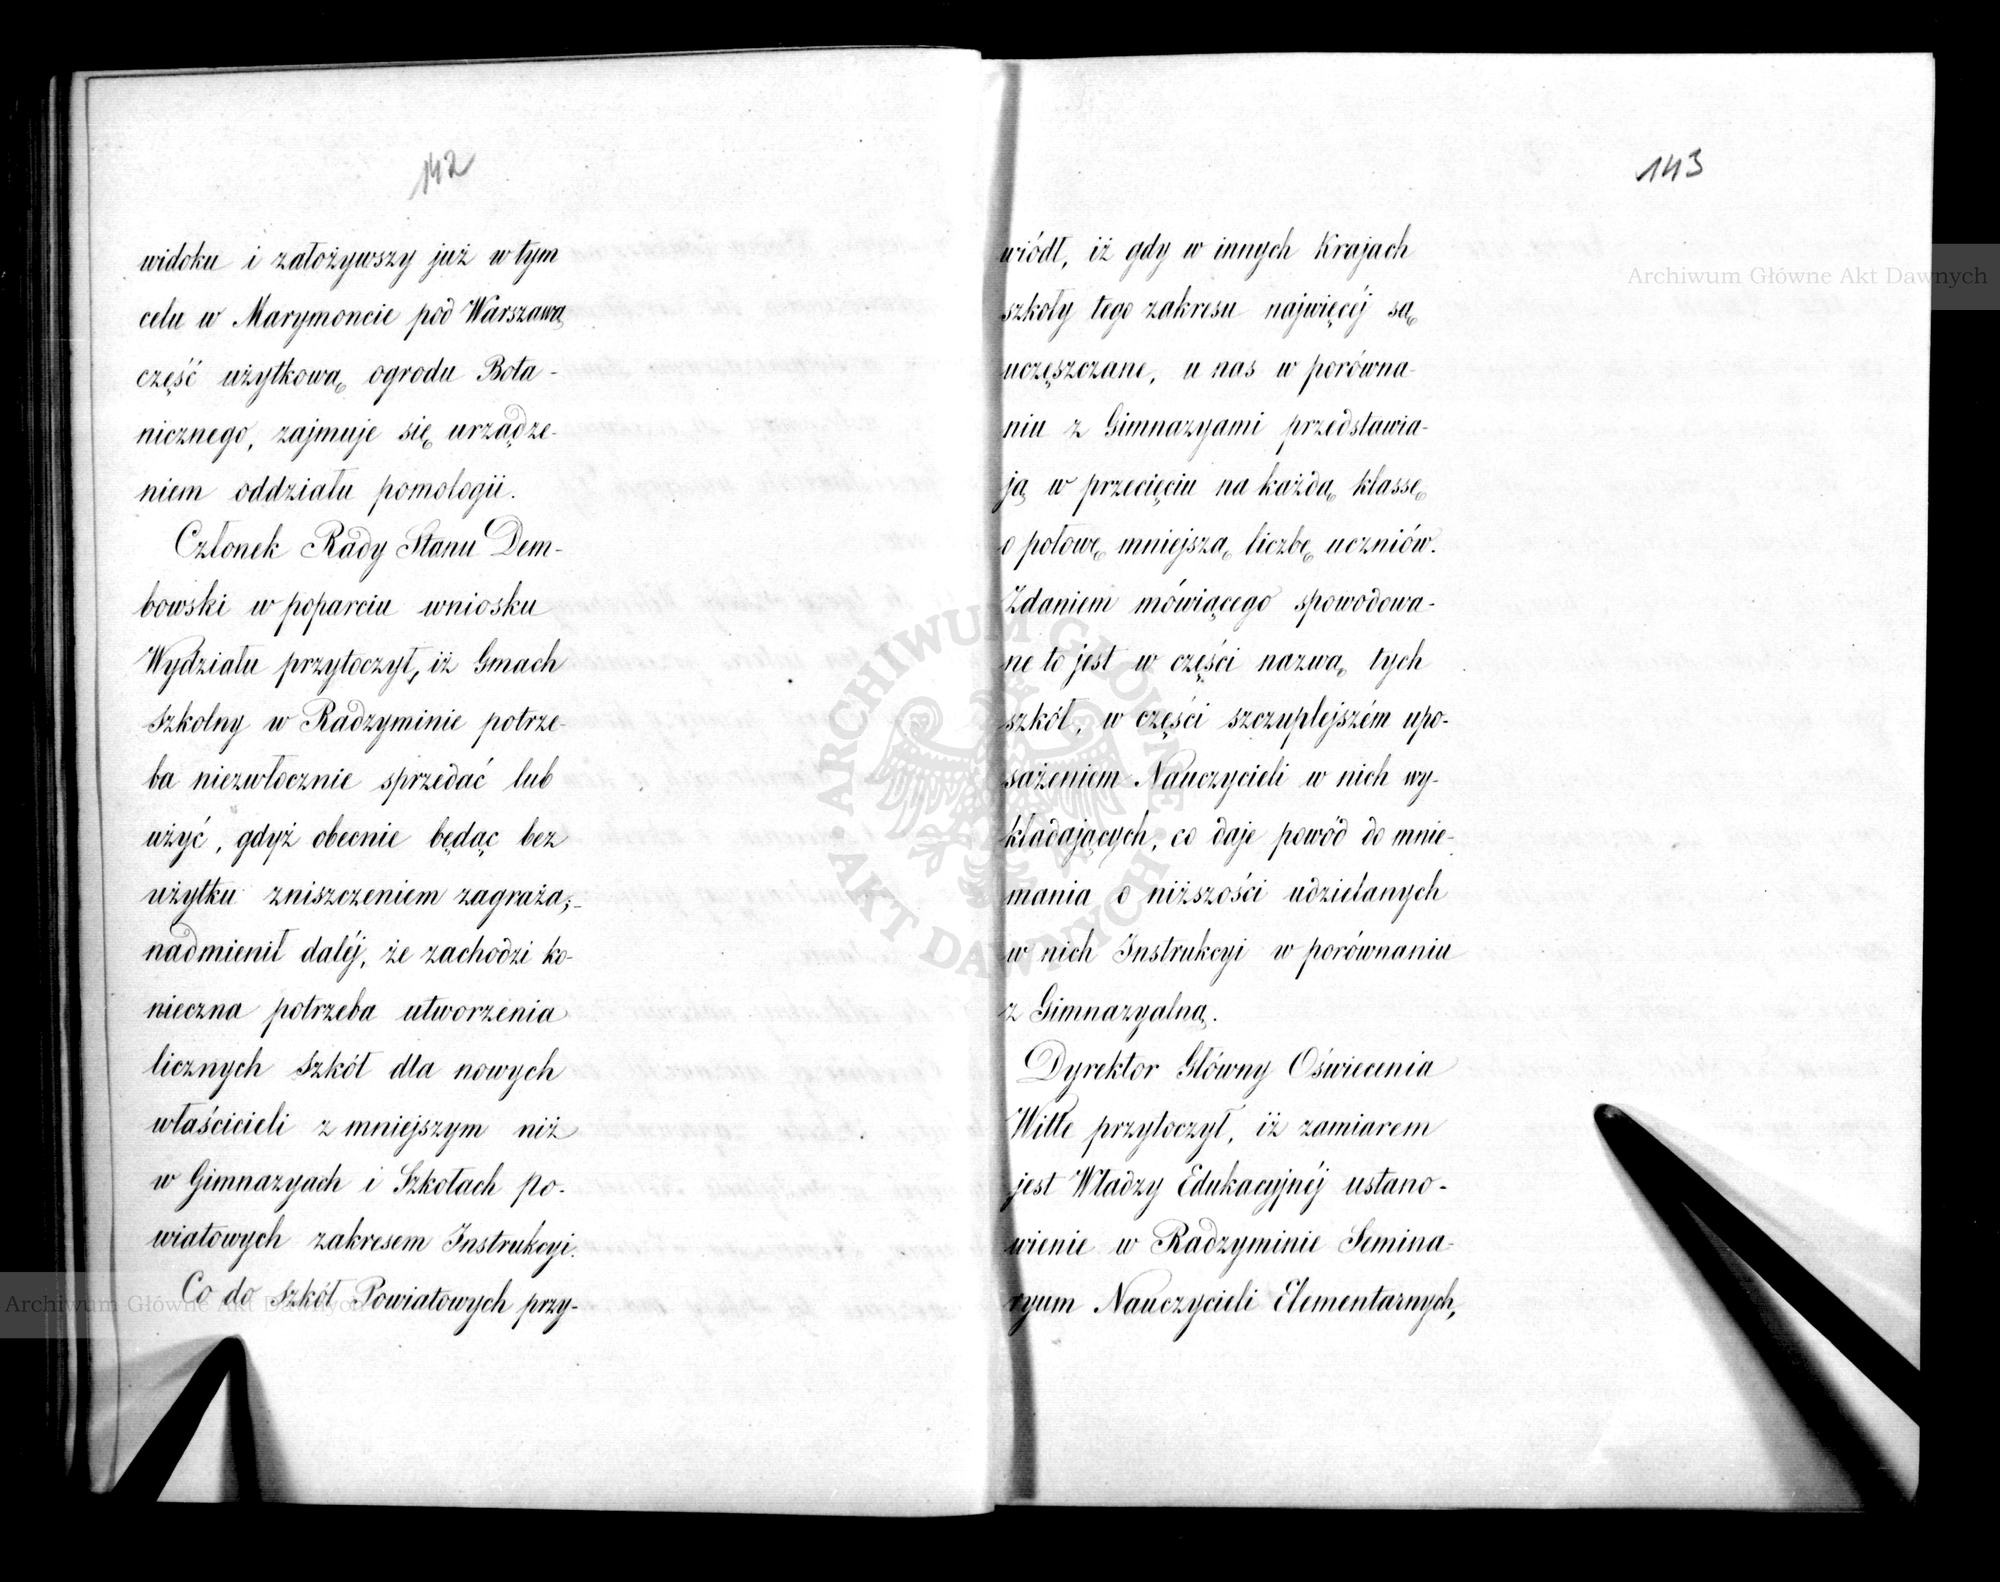 142
widoku i założywszy już w tym
celu w Marymoncie pod Warszawą
część użytkową ogrodu Bota-
nicznego, zajmuje się urządze-
niem oddziału pomologii.
Członek Rady Stanu Dem-
bowski w poparciu wniosku
Wydziału przytoczył, iż Gmach
szkolny w Radzyminie potrze-
ba niezwłocznie sprzedać lub
użyć, gdyż obecnie będąc bez
użytku zniszczeniem zagraża;-
nadmienił daléj, że zachodzi ko-
nieczna potrzeba utworzenia
licznych szkół dla nowych
właścicieli z mniejszym niż
w Gimnazyach i Szkołach po-
wiatowych zakresem Instrukcyi.
Co do szkół Powiatowych przy-
143
wiódł, iż gdy w innych Krajach
szkoły tego zakresu najwięcéj są
uczęszczane, u nas w porówna-
niu z Gimnazyami przedstawia-
ją w przecięciu na każdą klassę
o połowę mniejszą liczbę uczniów.
Zdaniem mówiącego spowodowa-
ne to jest w części nazwą tych
szkół, w części szczuplejszém upo-
sażeniem Nauczycieli w nich wy-
kładających, co daje powód do mnie-
mania o niższości udzielanych
w nich Instrukcyi w porównaniu
z Gimnazyalną.
Dyrektor Główny Oświecenia
Witte przytoczył, iż zamiarem
jest Władzy Edukacyjnéj ustano-
wienie w Radzyminie Semina-
ryum Nauczycieli Elementarnych,
Archiwum Główne Akt Dawnych
ARCHIWUM GŁÓWNE AKT DAWNYCH
Archiwum Główne Akt Dawnych